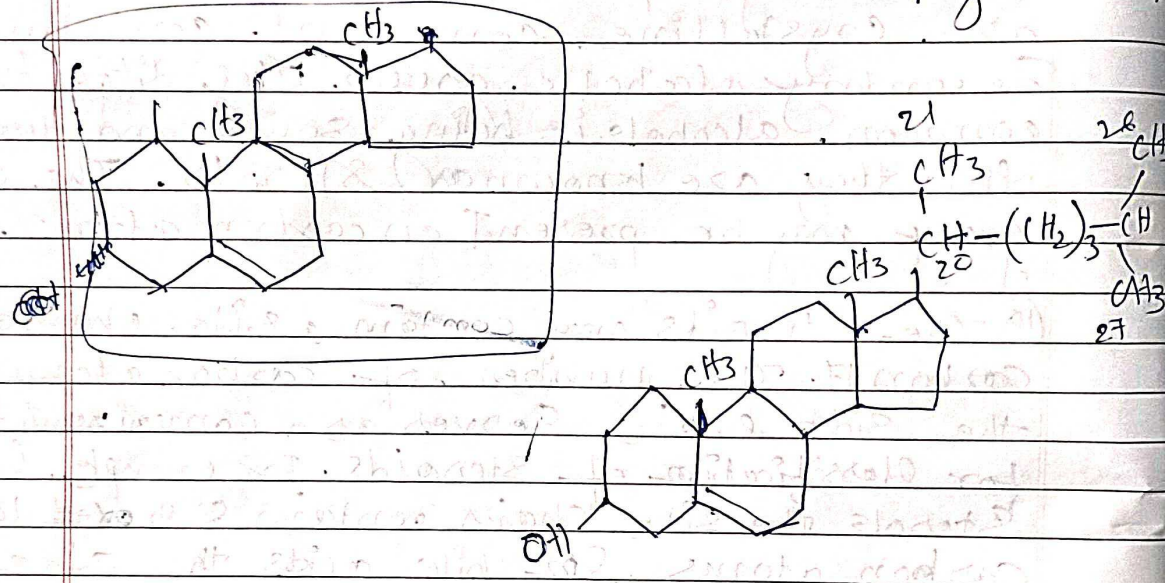 CH3
CH3
21
CH3
CH-(CH2)3-CH
20
CH3
CH3
27
CH3
OH